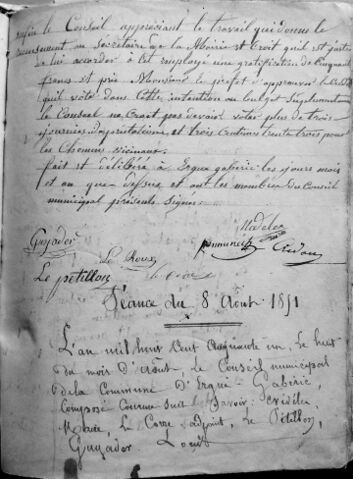 enfin le Conseil appréciant le travail que donne le
recensement au Secrétaire de la Mairie et Croit qu'il est juste
de lui accorder à cet employé une gratification de Cinquante
francs et prie Monsieur le préfet d'approuver le Crédit
qu'il vote dans Cette intention au budget Supplémentaire
le Conseil ne Croit pas devoir voter plus de trois
journées de prestations, et trois Centimes trente trois pour
les Chemins vicinaux.
fait et délibéré à Ergué gabéric les jours mois
et an que dessus et ont les membres du Conseil
municipal présents Signé.
Guyader
Le Roux
Le pétillon
Séance du 8 Août 1851
L'an mil huit Cent Cinquante un, le huit
du mois d'Août, le Conseil municipal
de la Commune D'Ergué-Gabéric,
Composé Comme Suit Savoir:
le Corre adjoint, Le Pétillon,
Guyader